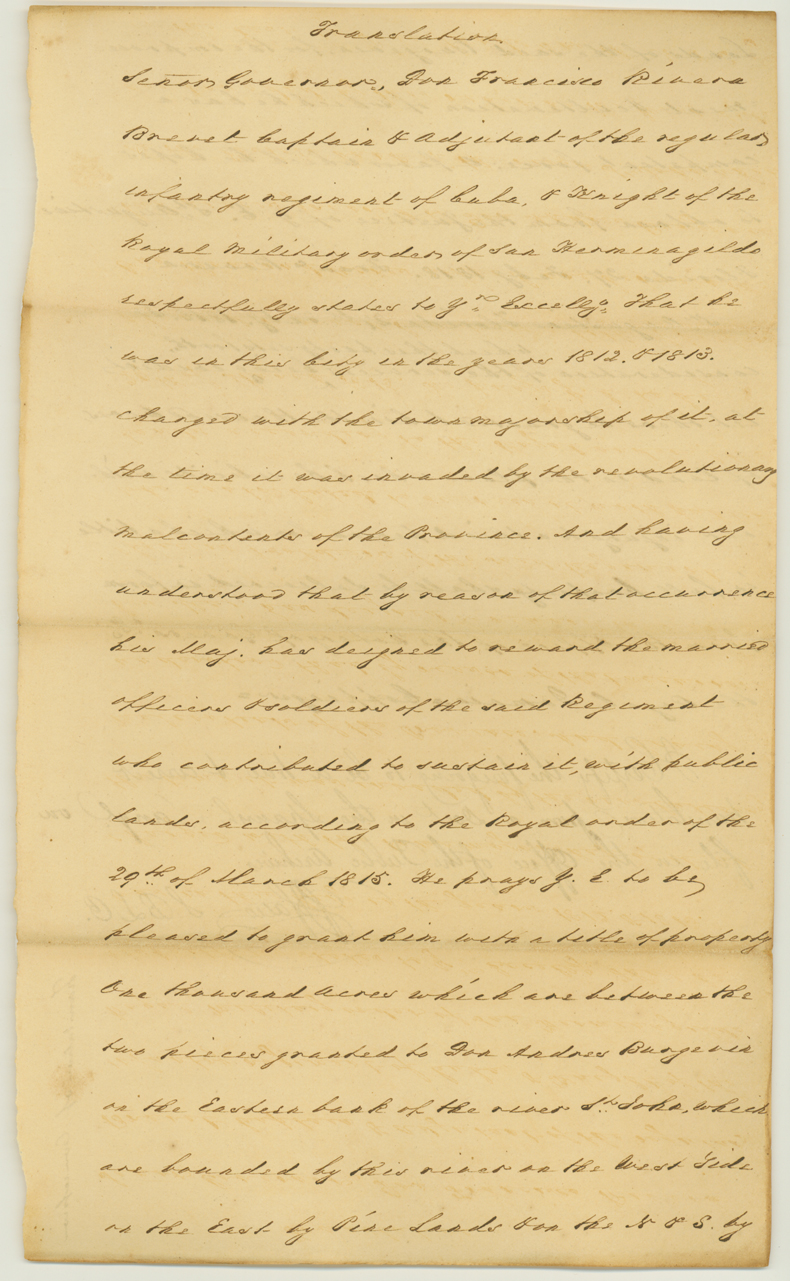 Translation
Señor Governor, Don Francisco Rivera
Brevet Captain & Adjutant of the regular
infantry regiment of Cuba, & Knight of the
Royal Military order of San Hermenagildo
respectfully states to Yr. Excellya. That he
was in this City in the years 1812. & 1813.
charged with the town majorship of it, at
the time it was invaded by the revolutionary
malcontents of the Province. And having
understood that by reason of that occurrence
his Maj. has deigned to reward the married
officers & soldiers of the said Regiment
who contributed to sustain it, with public
lands, according to the Royal order of the
29th. of March 1815. He prays Y. E. to be
pleased to grant him with a title of property
One thousand Acres which are between the
two pieces granted to Don Andres Burgevin
on the Eastern bank of the river St. John, which
are bounded by this river on the West Side
on the East by Pine Lands & on the N & S. by